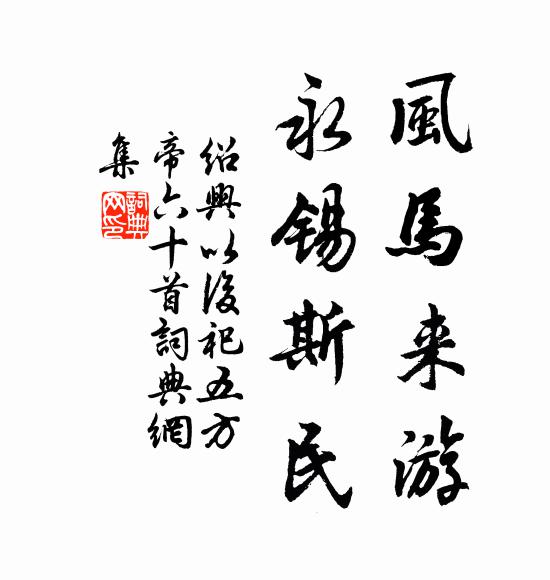 風馬来游
永錫斯民
紹興以後祀五方
帝六十首詞典網
集
詞典
网印